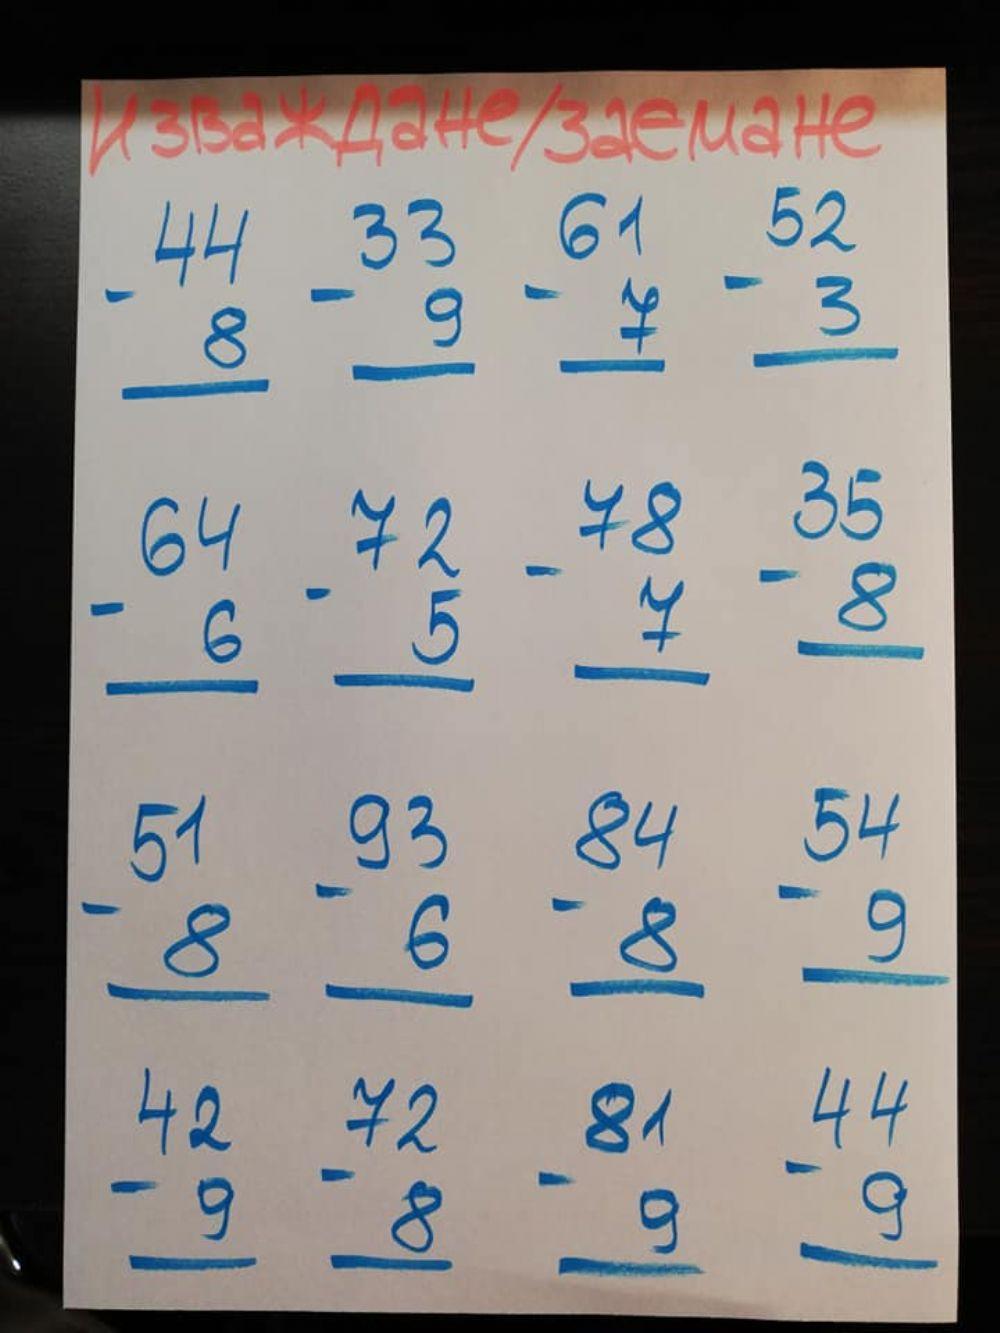 Изваждане/заемане
44 33 61 52
- 8 - 9 - 7 - 3
64 72 78 35
- 6 - 5 - 7 - 8
51 93 84 54
- 8 - 6 - 8 - 9
42 72 81 44
- 9 - 8 - 9 - 9